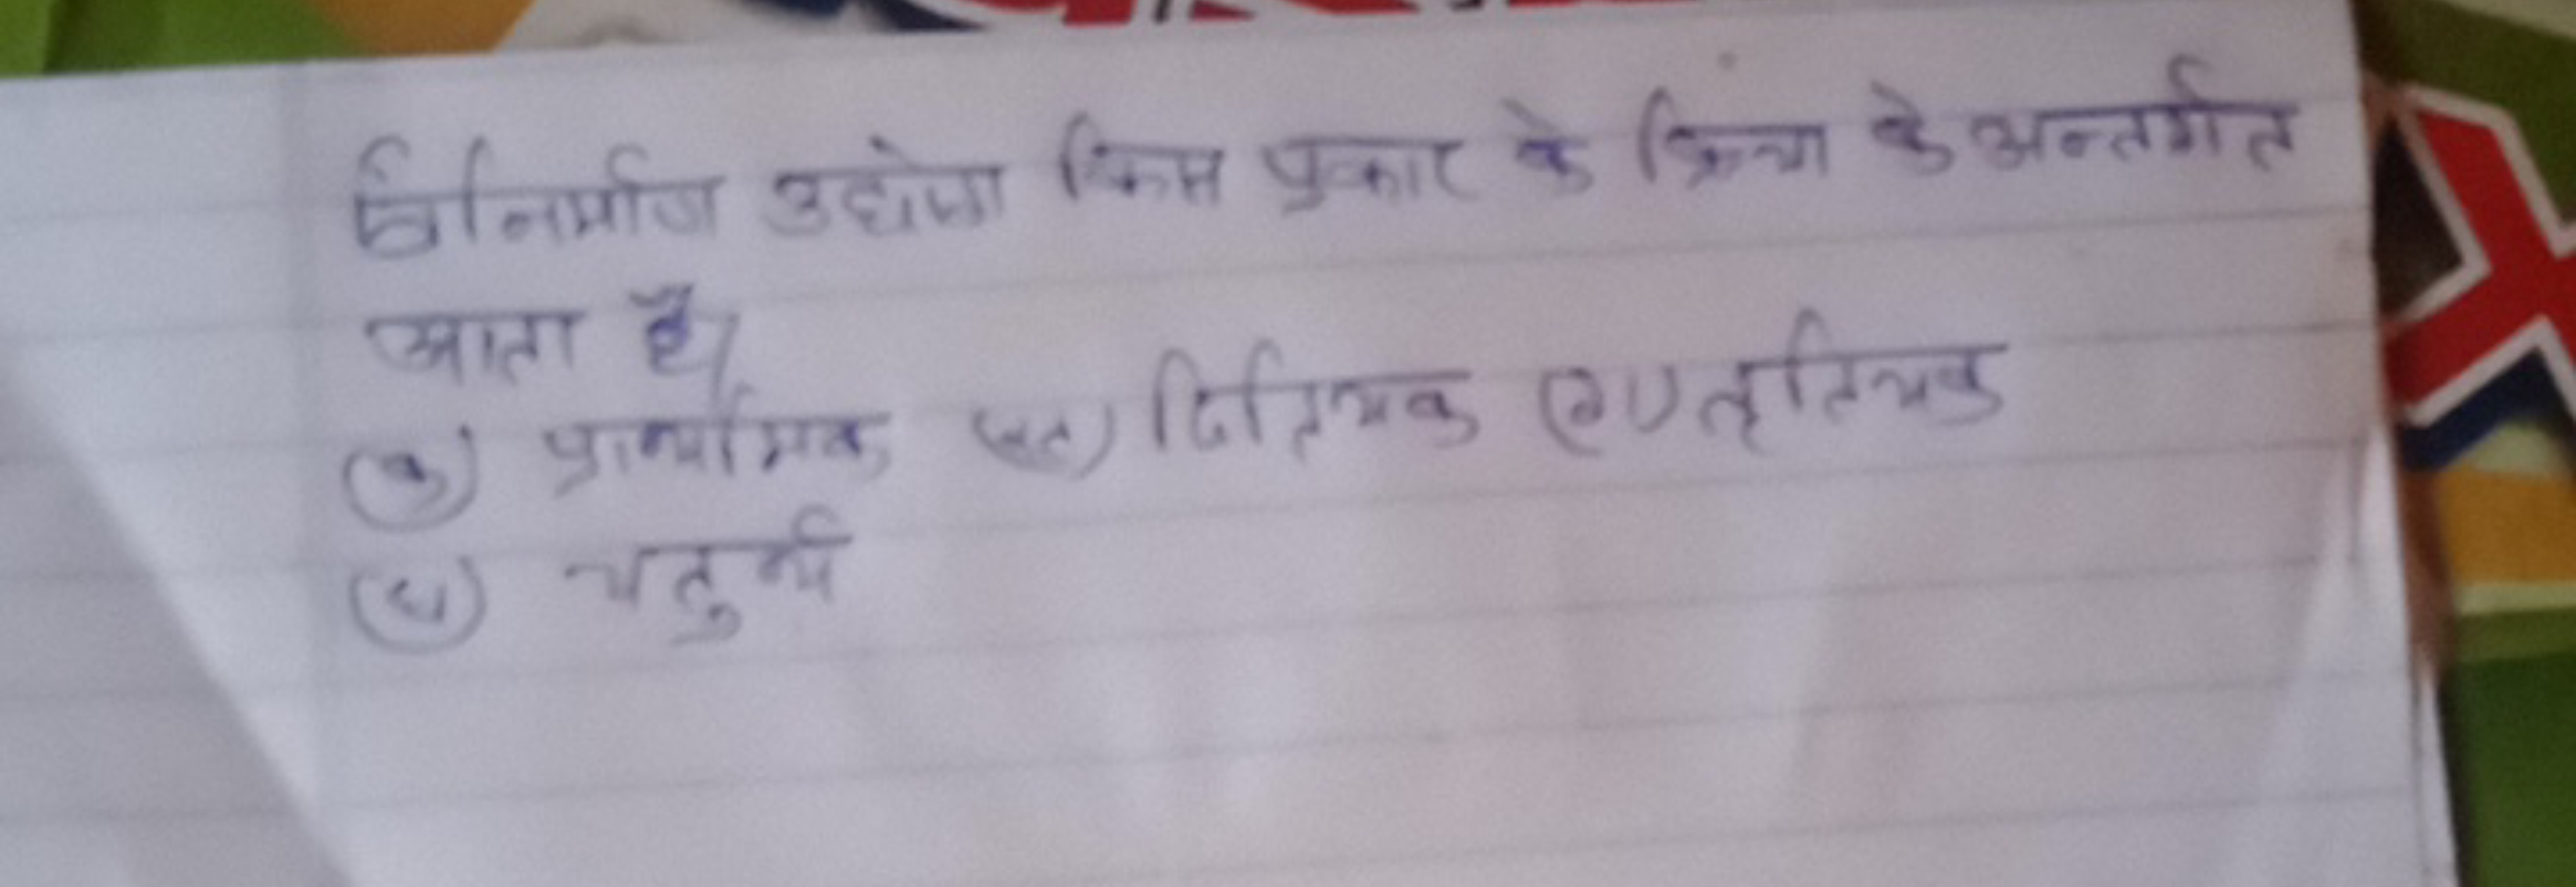 विनिर्माण उद्योग किस प्रकार के क्रिया के अन्तर्गत
आता है।
(क) प्राथमिक (ख) द्वितियक (ग) तृतियक
(घ) चतुर्थ